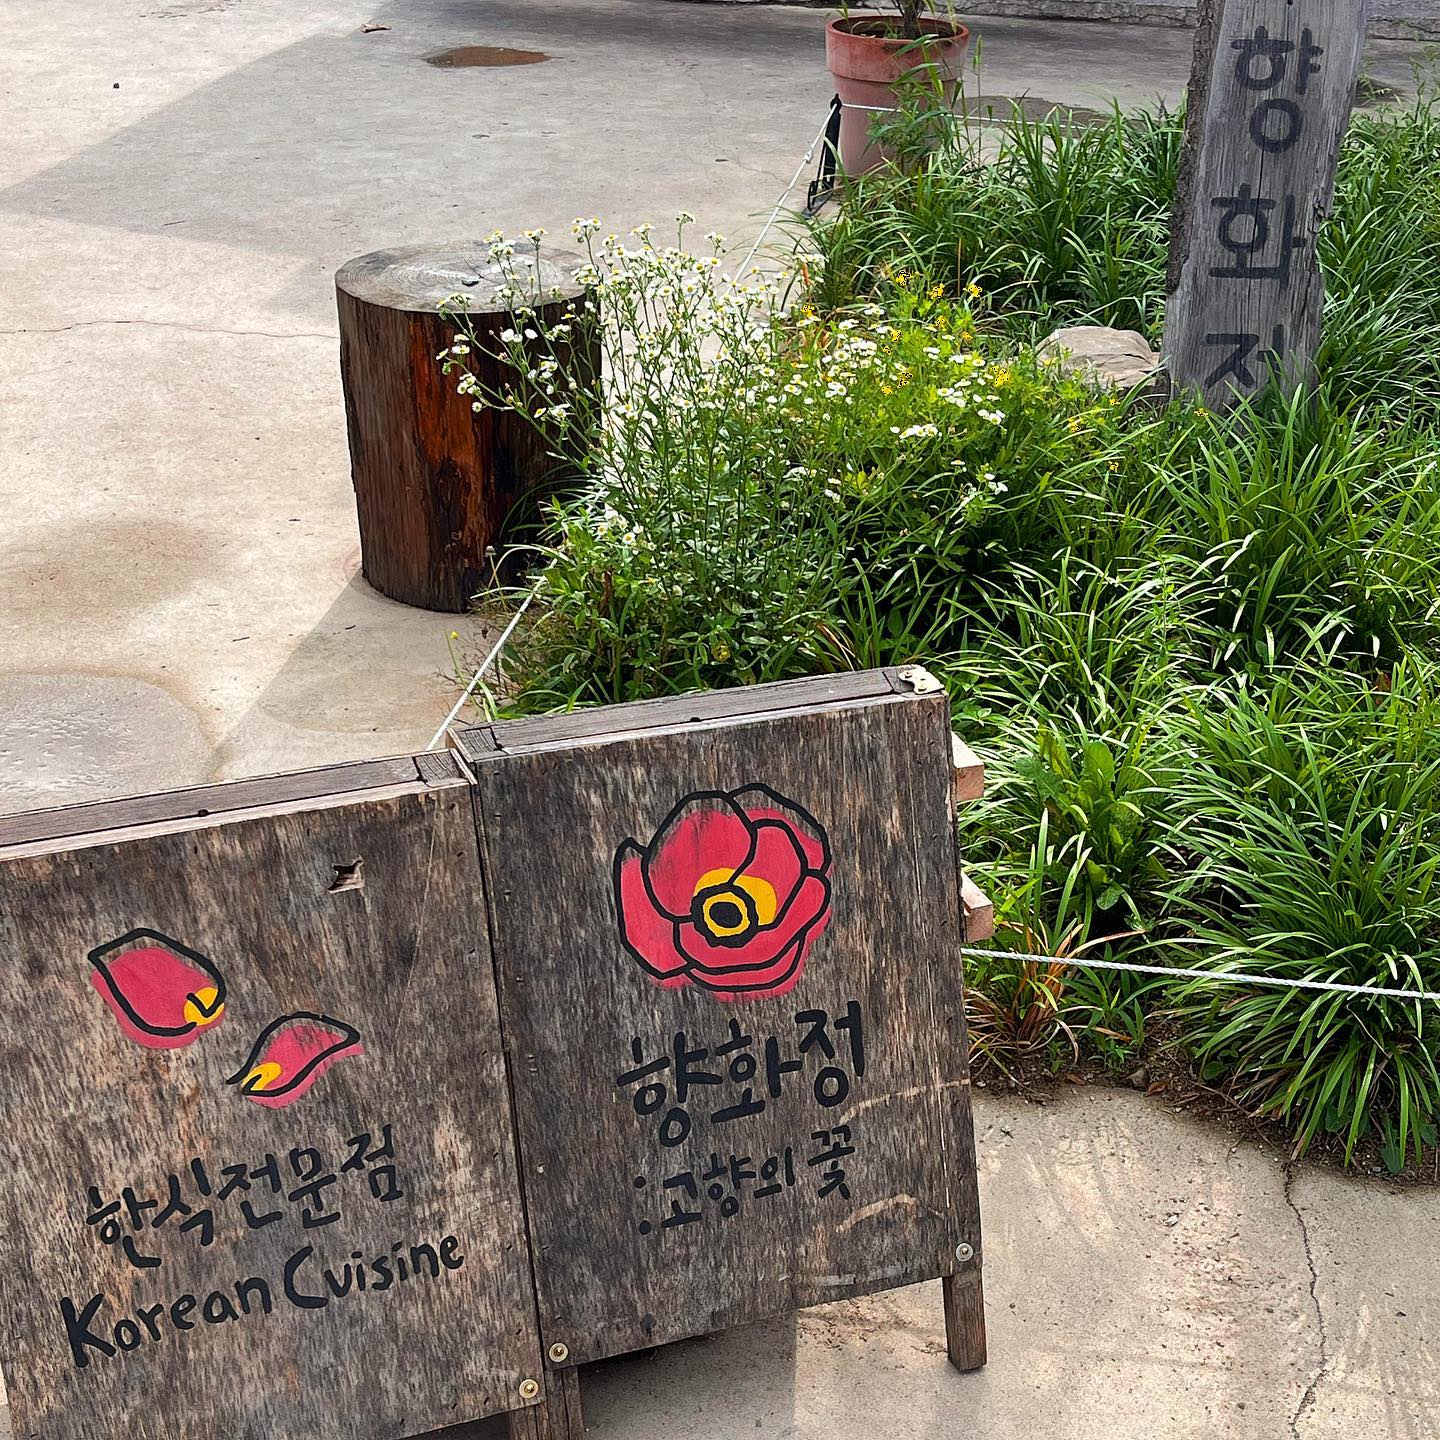 향화정
한식전문점
Korean Cuisine
향화정
:고향의 꽃